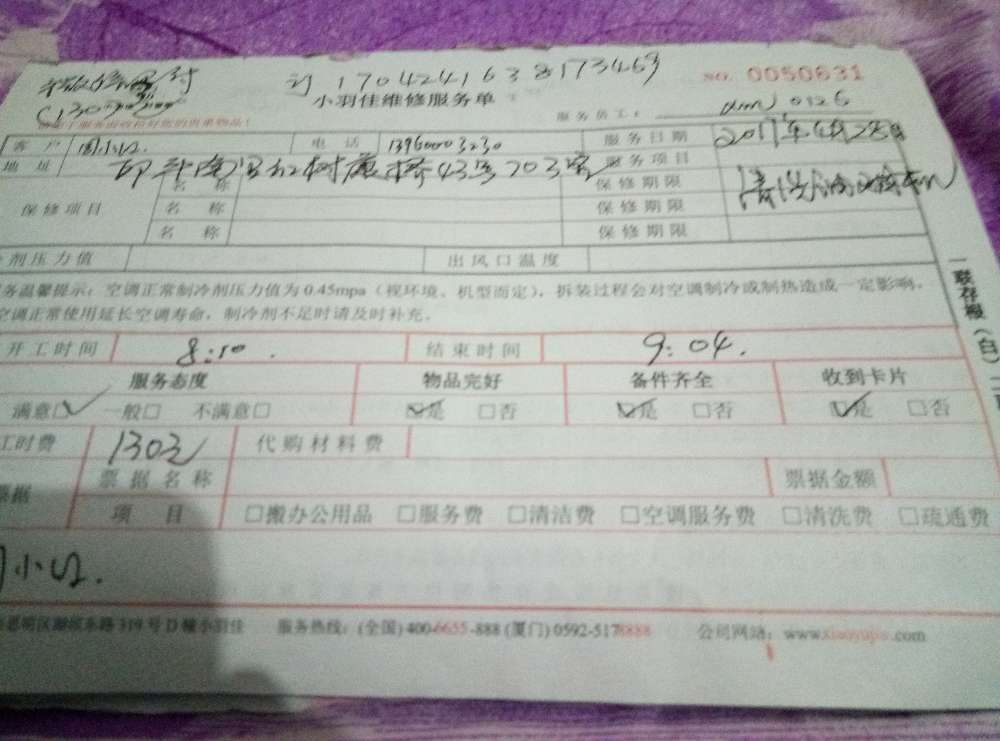 订 1704241638173463
NO. 0050631
小羽佳维修服务单
服务员工: 0126
客户 周小 电话 13960003230 服务日期 2017年4月28日
地址 43号703室 服务项目 清洗
保修项目 名称 保修期限
名称 保修期限
名称 保修期限
剂压力值 出风口温度
务温馨提示: 空调正常制冷剂压力值为0.45mpa(视环境、机型而定), 拆装过程会对空调制冷或制热造成一定影响。
空调正常使用延长空调寿命, 制冷剂不足时请及时补充。
开工时间 8:10. 结束时间 9:04.
服务态度 物品完好 备件齐全 收到卡片
满意□ 一般□ 不满意□ □是 □否 □是 □否 □是 □否
工时费 130元 代购材料费
票据 票据名称 票据金额
项目 □搬办公用品 □服务费 □清洁费 □空调服务费 □清洗费 □疏通费
周小
思明区湖滨东路319号D幢小羽佳 服务热线: (全国) 400-6655-888 (厦门) 0592-5178888 公司网站: www.xiaoyujia.com
一联存根(白)二